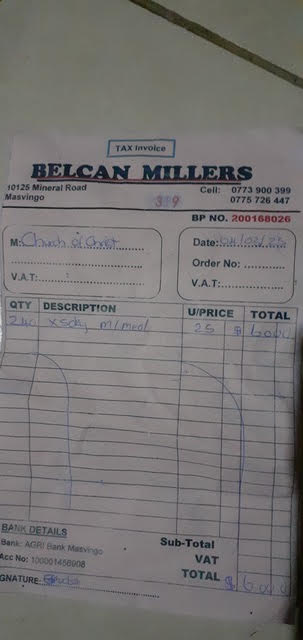 TAX Invoice
BELCAN MILLERS
10125 Mineral Road
Masvingo
Cell: 0773 900 399
0775 726 447
319
BP NO. 200168026
M: Church of Christ
V.A.T:
Date: 04/02/25
Order No:
V.A.T:
QTY DESCRIPTION U/PRICE TOTAL
240 x 5kg m/meal 25 $ 6000
BANK DETAILS
Bank: AGRI Bank Masvingo
Acc No: 100001456908
GNATURE:
Sub-Total
VAT
TOTAL $6000